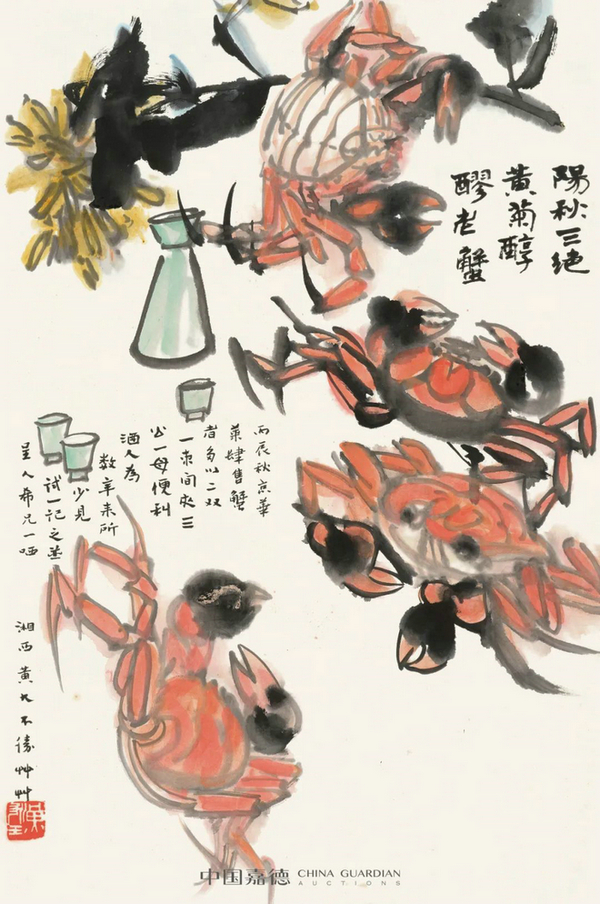 陽秋三绝
黄菊醇
醪老蟹
丙辰秋京華
菜肆售蟹
者多以二双
一束间夾三
公一母便利
酒人為
数年来所
少見
试一记之並
呈人希兄一哂
湘西黄大不勝艸艸
黄永玉
中国嘉德 CHINA GUARDIAN
AUCTIONS